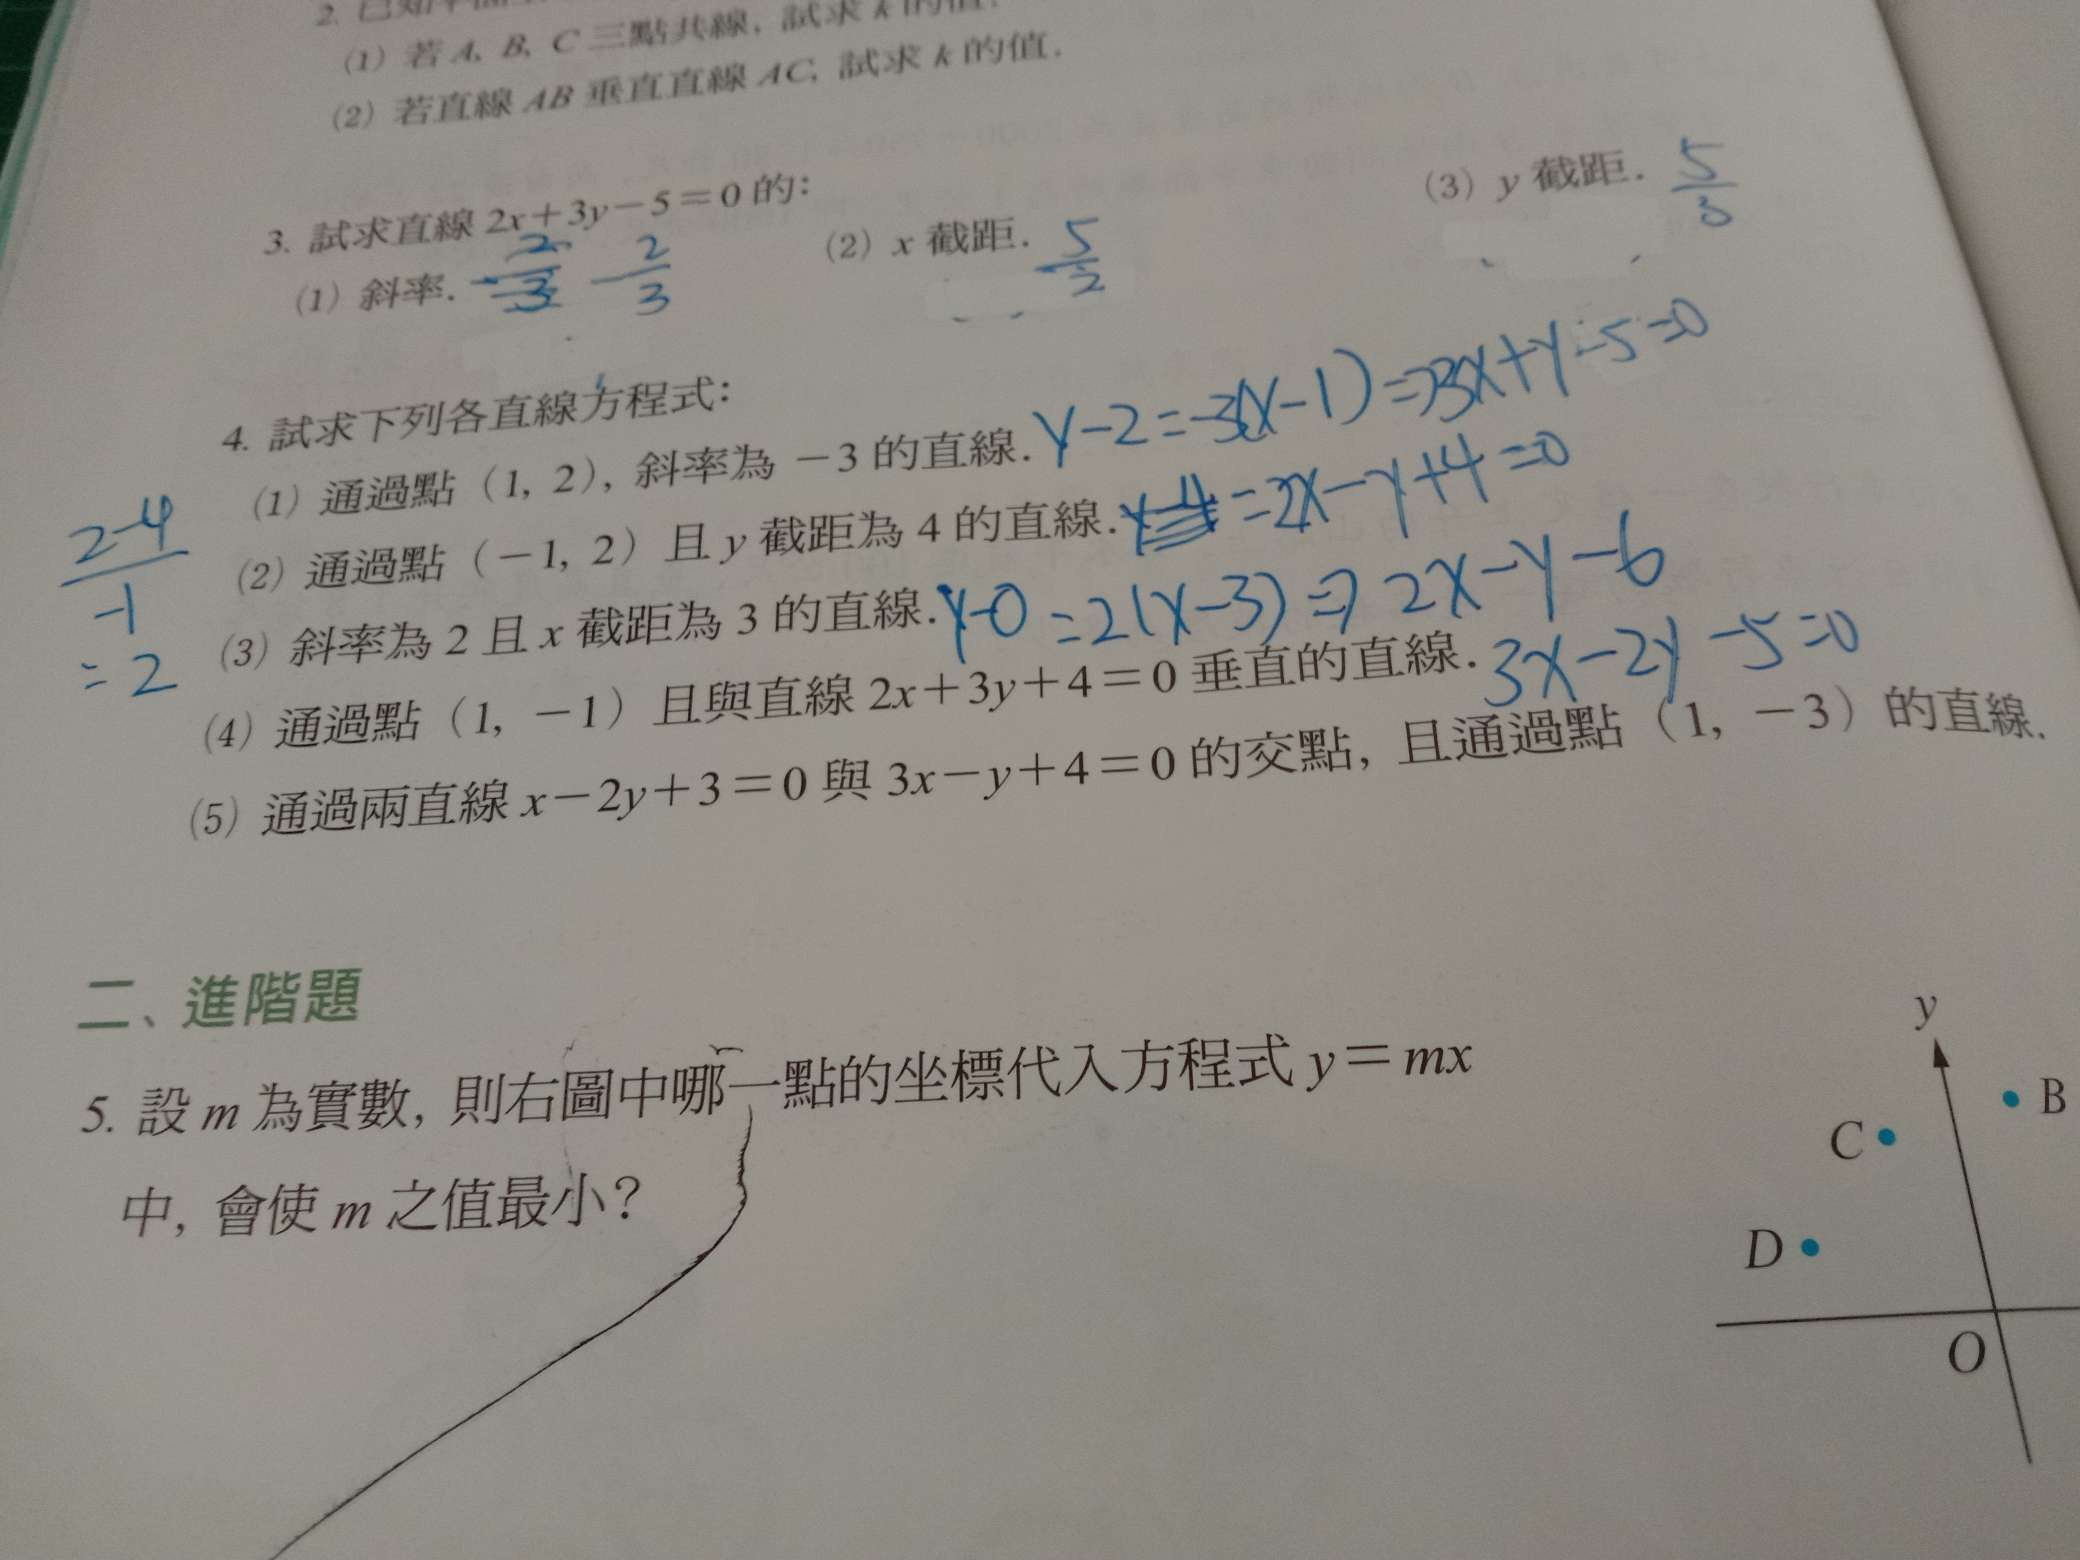 2. 已知平面上
(1) 若 A, B, C 三點共線, 試求 k 的值.
(2) 若直線 AB 垂直直線 AC, 試求 k 的值.
3. 試求直線 2x+3y-5=0 的:
(1) 斜率. -2/3 (2) x 截距. 5/2 (3) y 截距. 5/3
4. 試求下列各直線方程式:
(1) 通過點 (1, 2), 斜率為 -3 的直線. y-2=-3(x-1)⇒3x+y-5=0
(2) 通過點 (-1, 2) 且 y 截距為 4 的直線. =2x-y+4=0
2-4
-1
=2
(3) 斜率為 2 且 x 截距為 3 的直線. y-0=2(x-3)⇒2x-y-6
(4) 通過點 (1, -1) 且與直線 2x+3y+4=0 垂直的直線. 3x-2y-5=0
(5) 通過兩直線 x-2y+3=0 與 3x-y+4=0 的交點, 且通過點 (1, -3) 的直線.
二、進階題
5. 設 m 為實數, 則右圖中哪一點的坐標代入方程式 y=mx
中, 會使 m 之值最小?
y
B
C
D
O